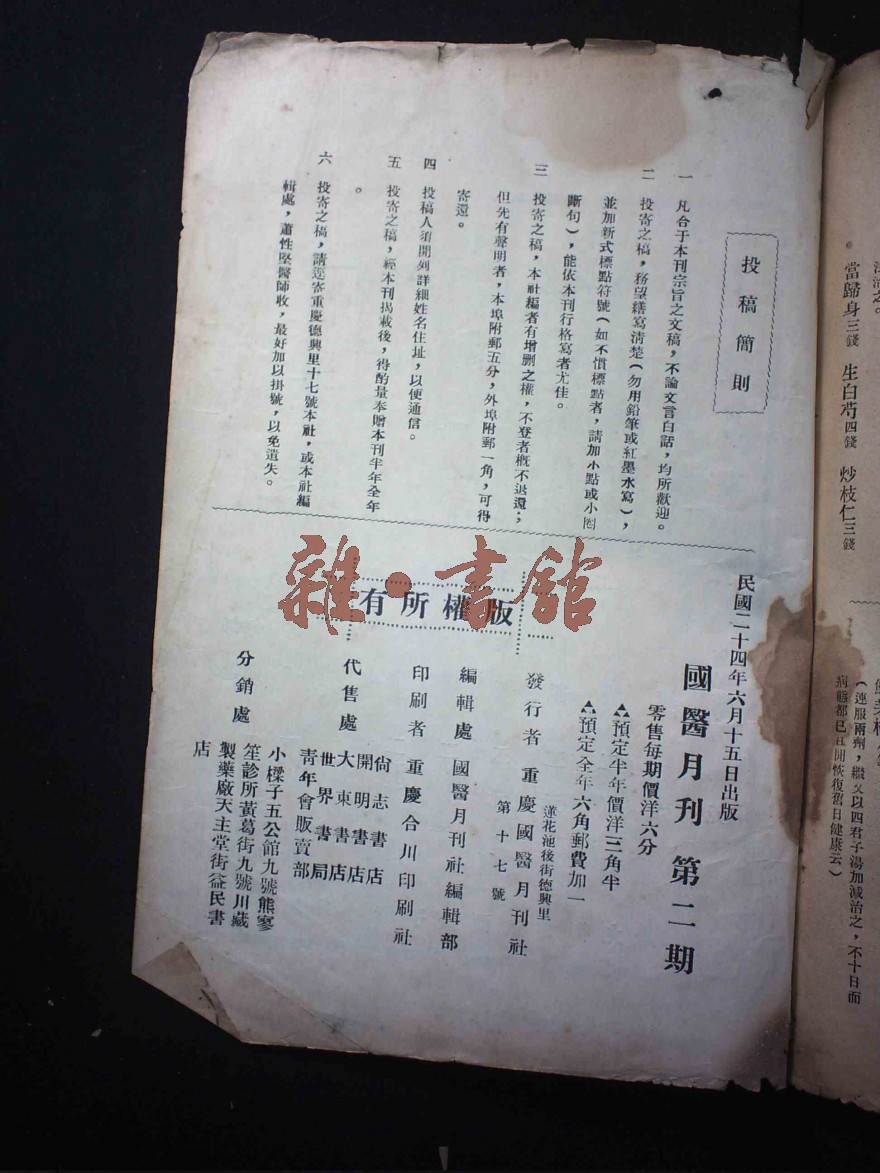 投稿簡則
一　凡合于本刊宗旨之文稿，不論文言白話，均所歡迎。
二　投寄之稿，務望繕寫清楚（勿用鉛筆或紅墨水寫），
並加新式標點符號（如不慣標點者，請加小點或小圈
斷句），能依本刊行格寫者尤佳。
三　投寄之稿，本社編者有增刪之權，不登者概不退還；
但先有聲明者，本埠附郵五分，外埠附郵一角，可得
寄還。
四　投稿人須開列詳細姓名住址，以便通信。
五　投寄之稿，經本刊揭載後，得酌量奉贈本刊半年全年
。
六　投寄之稿，請逕寄重慶德興里十七號本社，或本社編
輯處，蕭性堅醫師收，最好加以掛號，以免遺失。
民國二十四年六月十五日出版
國醫月刊 第二期
零售每期價洋六分
預定半年價洋三角半
預定全年六角郵費加一
版權所有
蓮花池後街德興里
發行者 重慶國醫月刊社
第十七號
編輯處 國醫月刊社編輯部
印刷者 重慶合川印刷社
代售處
尙志書店
開明書店
大東書店
世界書局
青年會販賣部
分銷處
小樑子五公館九號熊寥
笙診所黃葛街九號川藏
製藥廠天主堂街益民書
店
雜·書館
當歸身三錢 生白芍四錢 炒枝仁三錢
（連服兩劑，繼又以四君子湯加減治之，不十日而
病態都已丟開恢復舊日健康云）